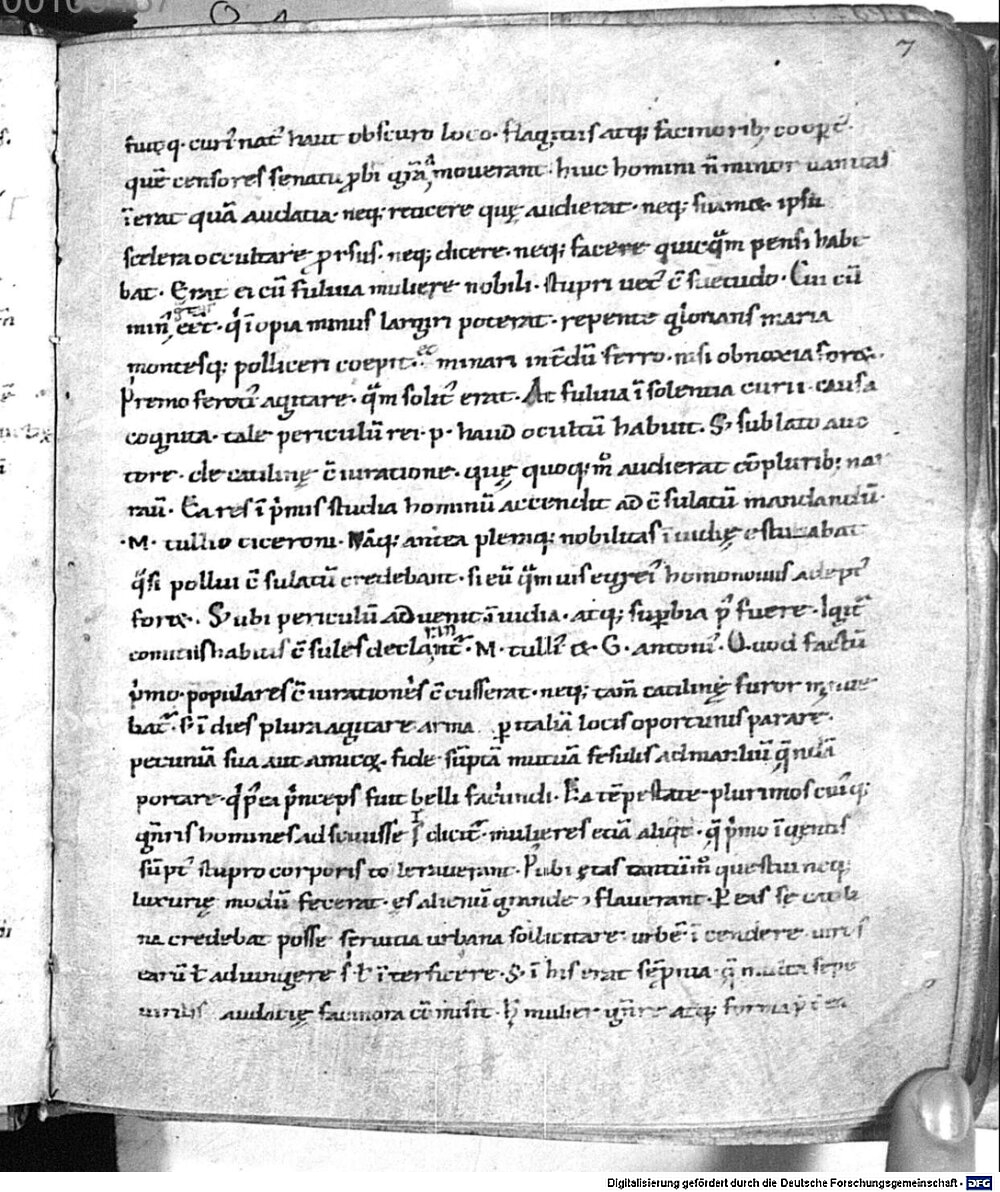 7
fuitq q. curi᾽ nat᾽ haut obscuro loco. flagitiis atq; facinorib; coopt᾽.
quē censores senatu ꝓbri gr̄a mouerant. huic homini n̄ minor uanitas
īerat quā audatia. neq; reticere quę audierat. neq; suamet ipsū
scelera occultare prsus. neq; dicere. neq; facere quicq̄m pensi habe
bat. Erat ei cū fuluia muliere nobili. stupri uet᾽ c̄suetudo. Cui cū
min᾽ eēt. q̄ īopia minus largiri poterat. repente glorians maria
montesq; polliceri coepit. et minari int̄dū ferro. nisi obnoxia foret.
Premo feroti᾽ agitare. q̄m solit᾽ erat. At fuluia īsolentia curii causa
cognita. tale periculū rei .p. haud ocultū habuit. S; sublato auc
tore. de catilinę c̄iuratione. quę quoq; m̊ audierat cōplurib; nar
rauit. Ea res ī p̄mis studia hominū accendit ad c̄sulatū mandandū.
.M. tullio ciceroni. Nāq; antea pleraq; nobilitas īuidię estuabat
q̄si pollui c̄sulatū credebant. si eū q̄muis egrei᾽ homo nouus adept᾽
foret. S; ubi periculū aduenit īuidia. atq; supbia p᾽ fuere. Igit᾽
comitiis habitis c̄sules declarant᾽. M. tulli᾽ et .G. antoni᾽. Quod factū
p̄mo populares c̄iurationes c̄cusserat. neq; tam̄ catilinę furor minue
bat᾽. s; ī dies plura agitare arma ꝑ italiā locis oportunis parare.
pecuniā sua aut amicoꝝ. fide sūptā mutuā fesulis ad manliū q̄ndā
portare. q̄ p᾽ea p̄nceps fuit belli faciundi. Ea tēpestate plurimos cui᾽q;
gn̄ris homines adsciuisse s᾽ dicit᾽. mulieres etiā aliq̄t. q̄ p̄mo īgentis
sūpt᾽ stupro corporis toleruerant. P᾽ ubi ętas tantūm̊ questui neq;
luxurię modū fecerat. ęs alienū grande ɔflauerant. P eas se catili
na credebat posse seruitia urbana sollicitare. urbē īcendere. uiros
earū ł adiungere s᾽ ł īterficere. S; ī his erat sēpnia. q̄ multa sepe
uirilis audatię facinora cōmisit. h᾽ mulier gn̄re atq; forma p᾽ea
Digitalisierung gefördert durch die Deutsche Forschungsgemeinschaft - DFG